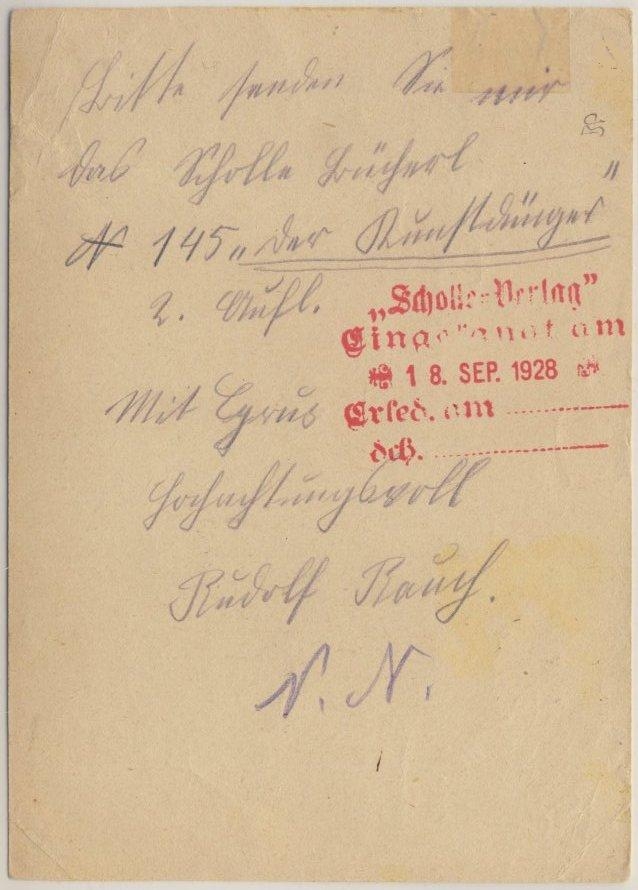 Bitte senden Sie mir
das Scholle Bücherl
N 145 „der Kunstdünger"
2. Aufl.
„Scholle-Verlag”
Eingelangt am
18. SEP. 1928
Mit Grus
Erled. am
dch.
Hochachtungsvoll
Rudolf Rauch.
V. N.